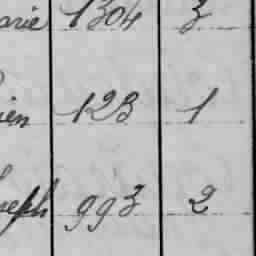 arie 1304 3
ien 123 1
seph 993 2